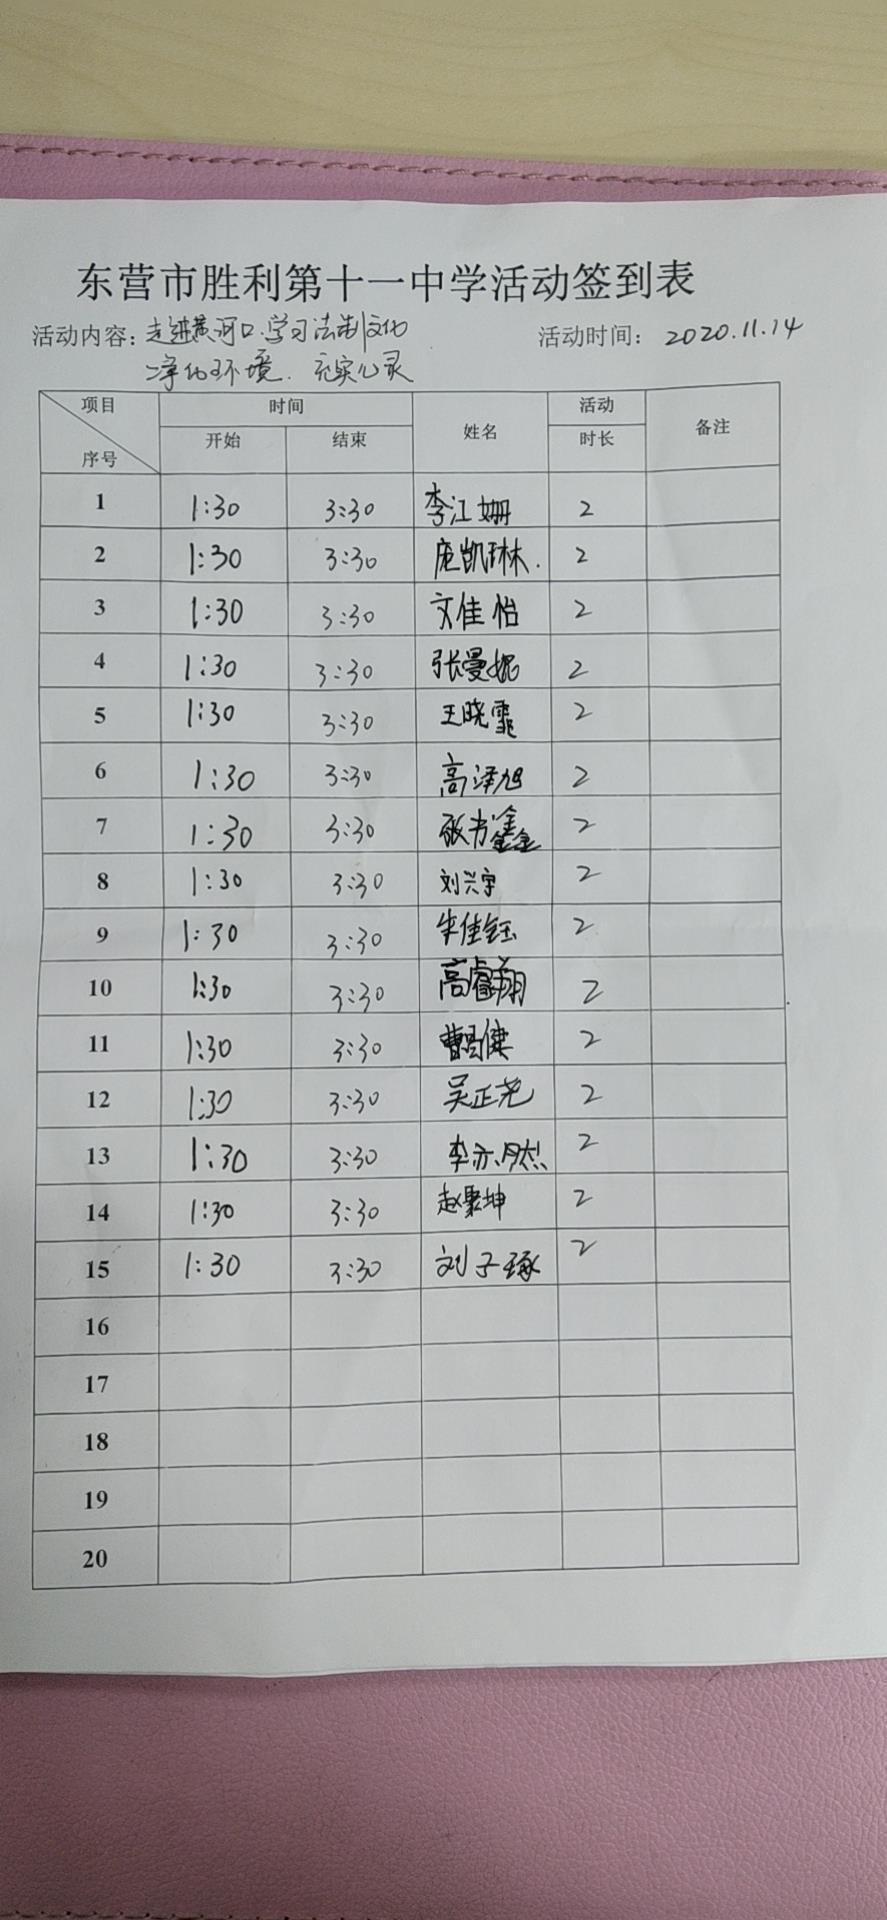 东营市胜利第十一中学活动签到表
活动内容：走进黄河口.学习法制文化 活动时间：2020.11.14
净化环境.充实心灵
项目 时间 姓名 活动 备注
序号 开始 结束 时长
1 1:30 3:30 李江姗 2
2 1:30 3:30 庞凯琳. 2
3 1:30 3:30 文佳怡 2
4 1:30 3:30 张曼妮 2
5 1:30 3:30 王晓霏 2
6 1:30 3:30 高泽旭 2
7 1:30 3:30 张书鑫 2
8 1:30 3:30 刘兴宇 2
9 1:30 3:30 牛佳钰 2
10 1:30 3:30 高睿翔 2
11 1:30 3:30 2
12 1:30 3:30 吴正尧 2
13 1:30 3:30 2
14 1:30 3:30 2
15 1:30 3:30 刘子琢 2
16
17
18
19
20